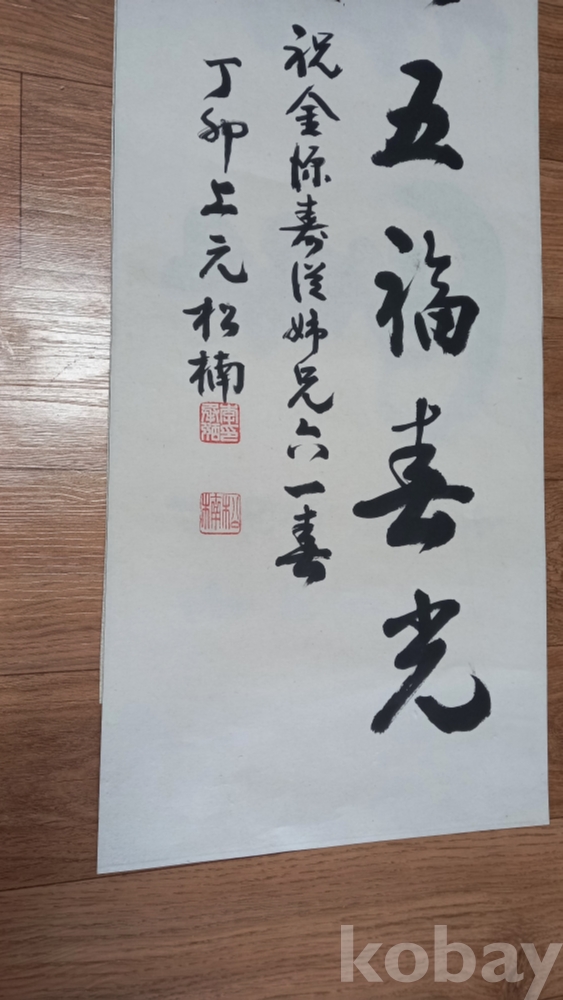 五福春光
祝金㻋壽從姉兄六一春
丁卯上元松楠
松楠
kobay